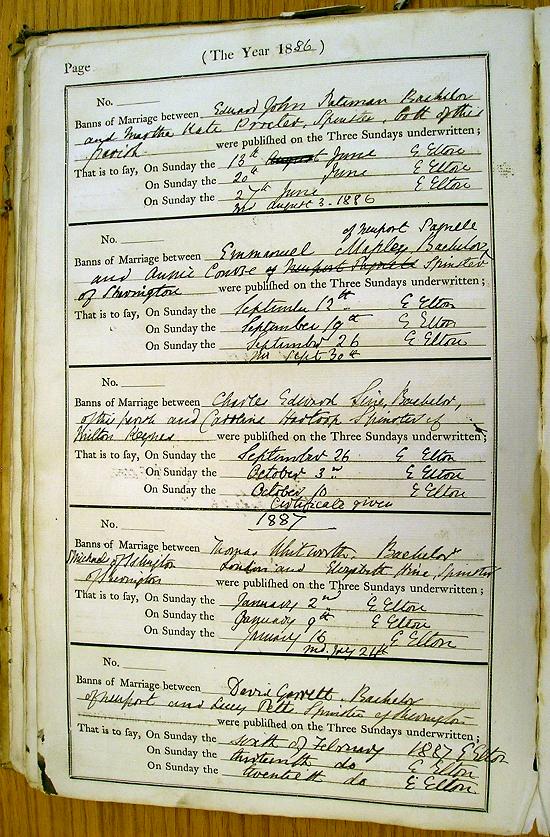 (The Year 1886)
Page
No.
Banns of Marriage between Edward John Bateman Bachelor
and Martha Kate Procter, Spinster, both of this
parish were published on the Three Sundays underwritten;
That is to say, On Sunday the 13th August June G Elton
On Sunday the 20th June G Elton
On Sunday the 27th June G Elton
md August 3. 1886
No. of Newport Pagnell
Banns of Marriage between Emmanuel Bachelor
and Annie of Newport Pagnell Spinster
of Sherington were published on the Three Sundays underwritten;
That is to say, On Sunday the September 12th G Elton
On Sunday the September 19th G Elton
On Sunday the September 26 G Elton
Sept 30th
No.
Banns of Marriage between Charles Edward Bachelor,
of this parish and Caroline Spinster of
Milton Keynes were published on the Three Sundays underwritten;
That is to say, On Sunday the September 26 G Elton
On Sunday the October 3rd G Elton
On Sunday the October 10 G Elton
Certificate given
No. 1887
Banns of Marriage between Thomas Whitworth Bachelor
of Islington London and Elizabeth Spinster
of Sherington were published on the Three Sundays underwritten;
That is to say, On Sunday the January 2nd G Elton
On Sunday the January 9th G Elton
On Sunday the January 16 G Elton
md. 24th
No.
Banns of Marriage between David Garrett Bachelor
of Newport and Lucy Spinster of Sherington
were published on the Three Sundays underwritten;
That is to say, On Sunday the sixth of February 1887 G Elton
On Sunday the thirteenth do G Elton
On Sunday the twentieth do G Elton